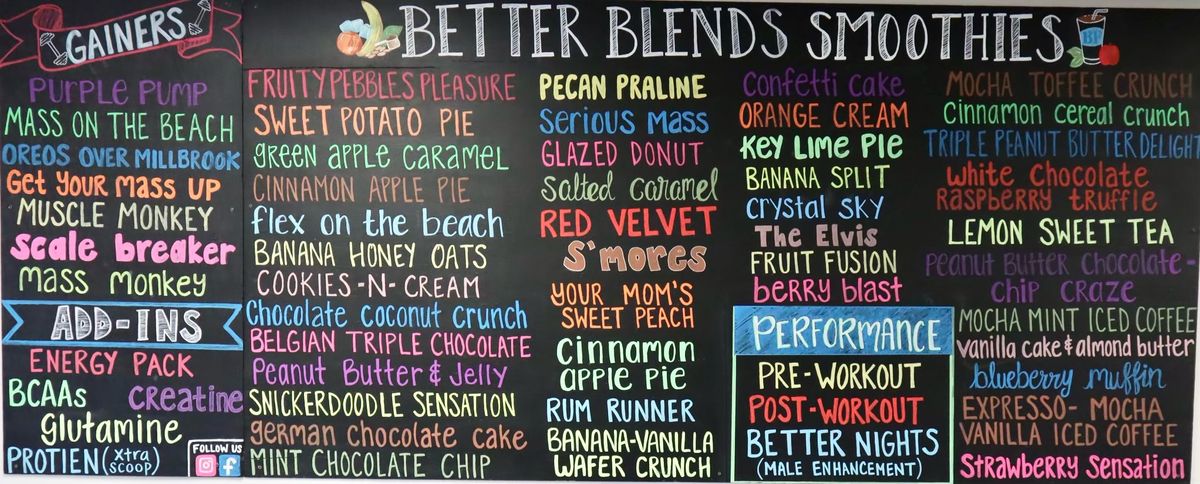 GAINERS
PURPLE PUMP
MASS ON THE BEACH
OREOS OVER MILLBROOK
Get YOUR MASS UP
MUSCLE MONKEY
scale breaker
mass monkey
ADD-INS
ENERGY PACK
BCAAs Creatine
Glutamine
PROTIEN (xtra scoop)
FOLLOW US
BETTER BLENDS SMOOTHIES
FRUITY PEBBLES PLEASURE
SWEET POTATO PIE
green apple caramel
CINNAMON APPLE PIE
flex on the beach
BANANA HONEY OATS
COOKIES-N-CREAM
Chocolate coconut crunch
BELGIAN TRIPLE CHOCOLATE
Peanut Butter & Jelly
SNICKERDOODLE SENSATION
german chocolate cake
MINT CHOCOLATE CHIP
PECAN PRALINE
serious mass
GLAZED DONUT
salted caramel
RED VELVET
S'mores
YOUR MOM'S
SWEET PEACH
cinnamon
apple pie
RUM RUNNER
BANANA-VANILLA
WAFER CRUNCH
Confetti Cake
ORANGE CREAM
Key Lime Pie
BANANA SPLIT
crystal sky
The Elvis
FRUIT FUSION
berry blast
PERFORMANCE
PRE-WORKOUT
POST-WORKOUT
BETTER NIGHTS
(MALE ENHANCEMENT)
MOCHA TOFFEE CRUNCH
Cinnamon cereal crunch
TRIPLE PEANUT BUTTER DELIGHT
white Chocolate
Raspberry truffle
LEMON SWEET TEA
Peanut Butter Chocolate-
chip craze
MOCHA MINT ICED COFFEE
vanilla cake & almond butter
blueberry muffin
EXPRESSO- MOCHA
VANILLA ICED COFFEE
Strawberry Sensation